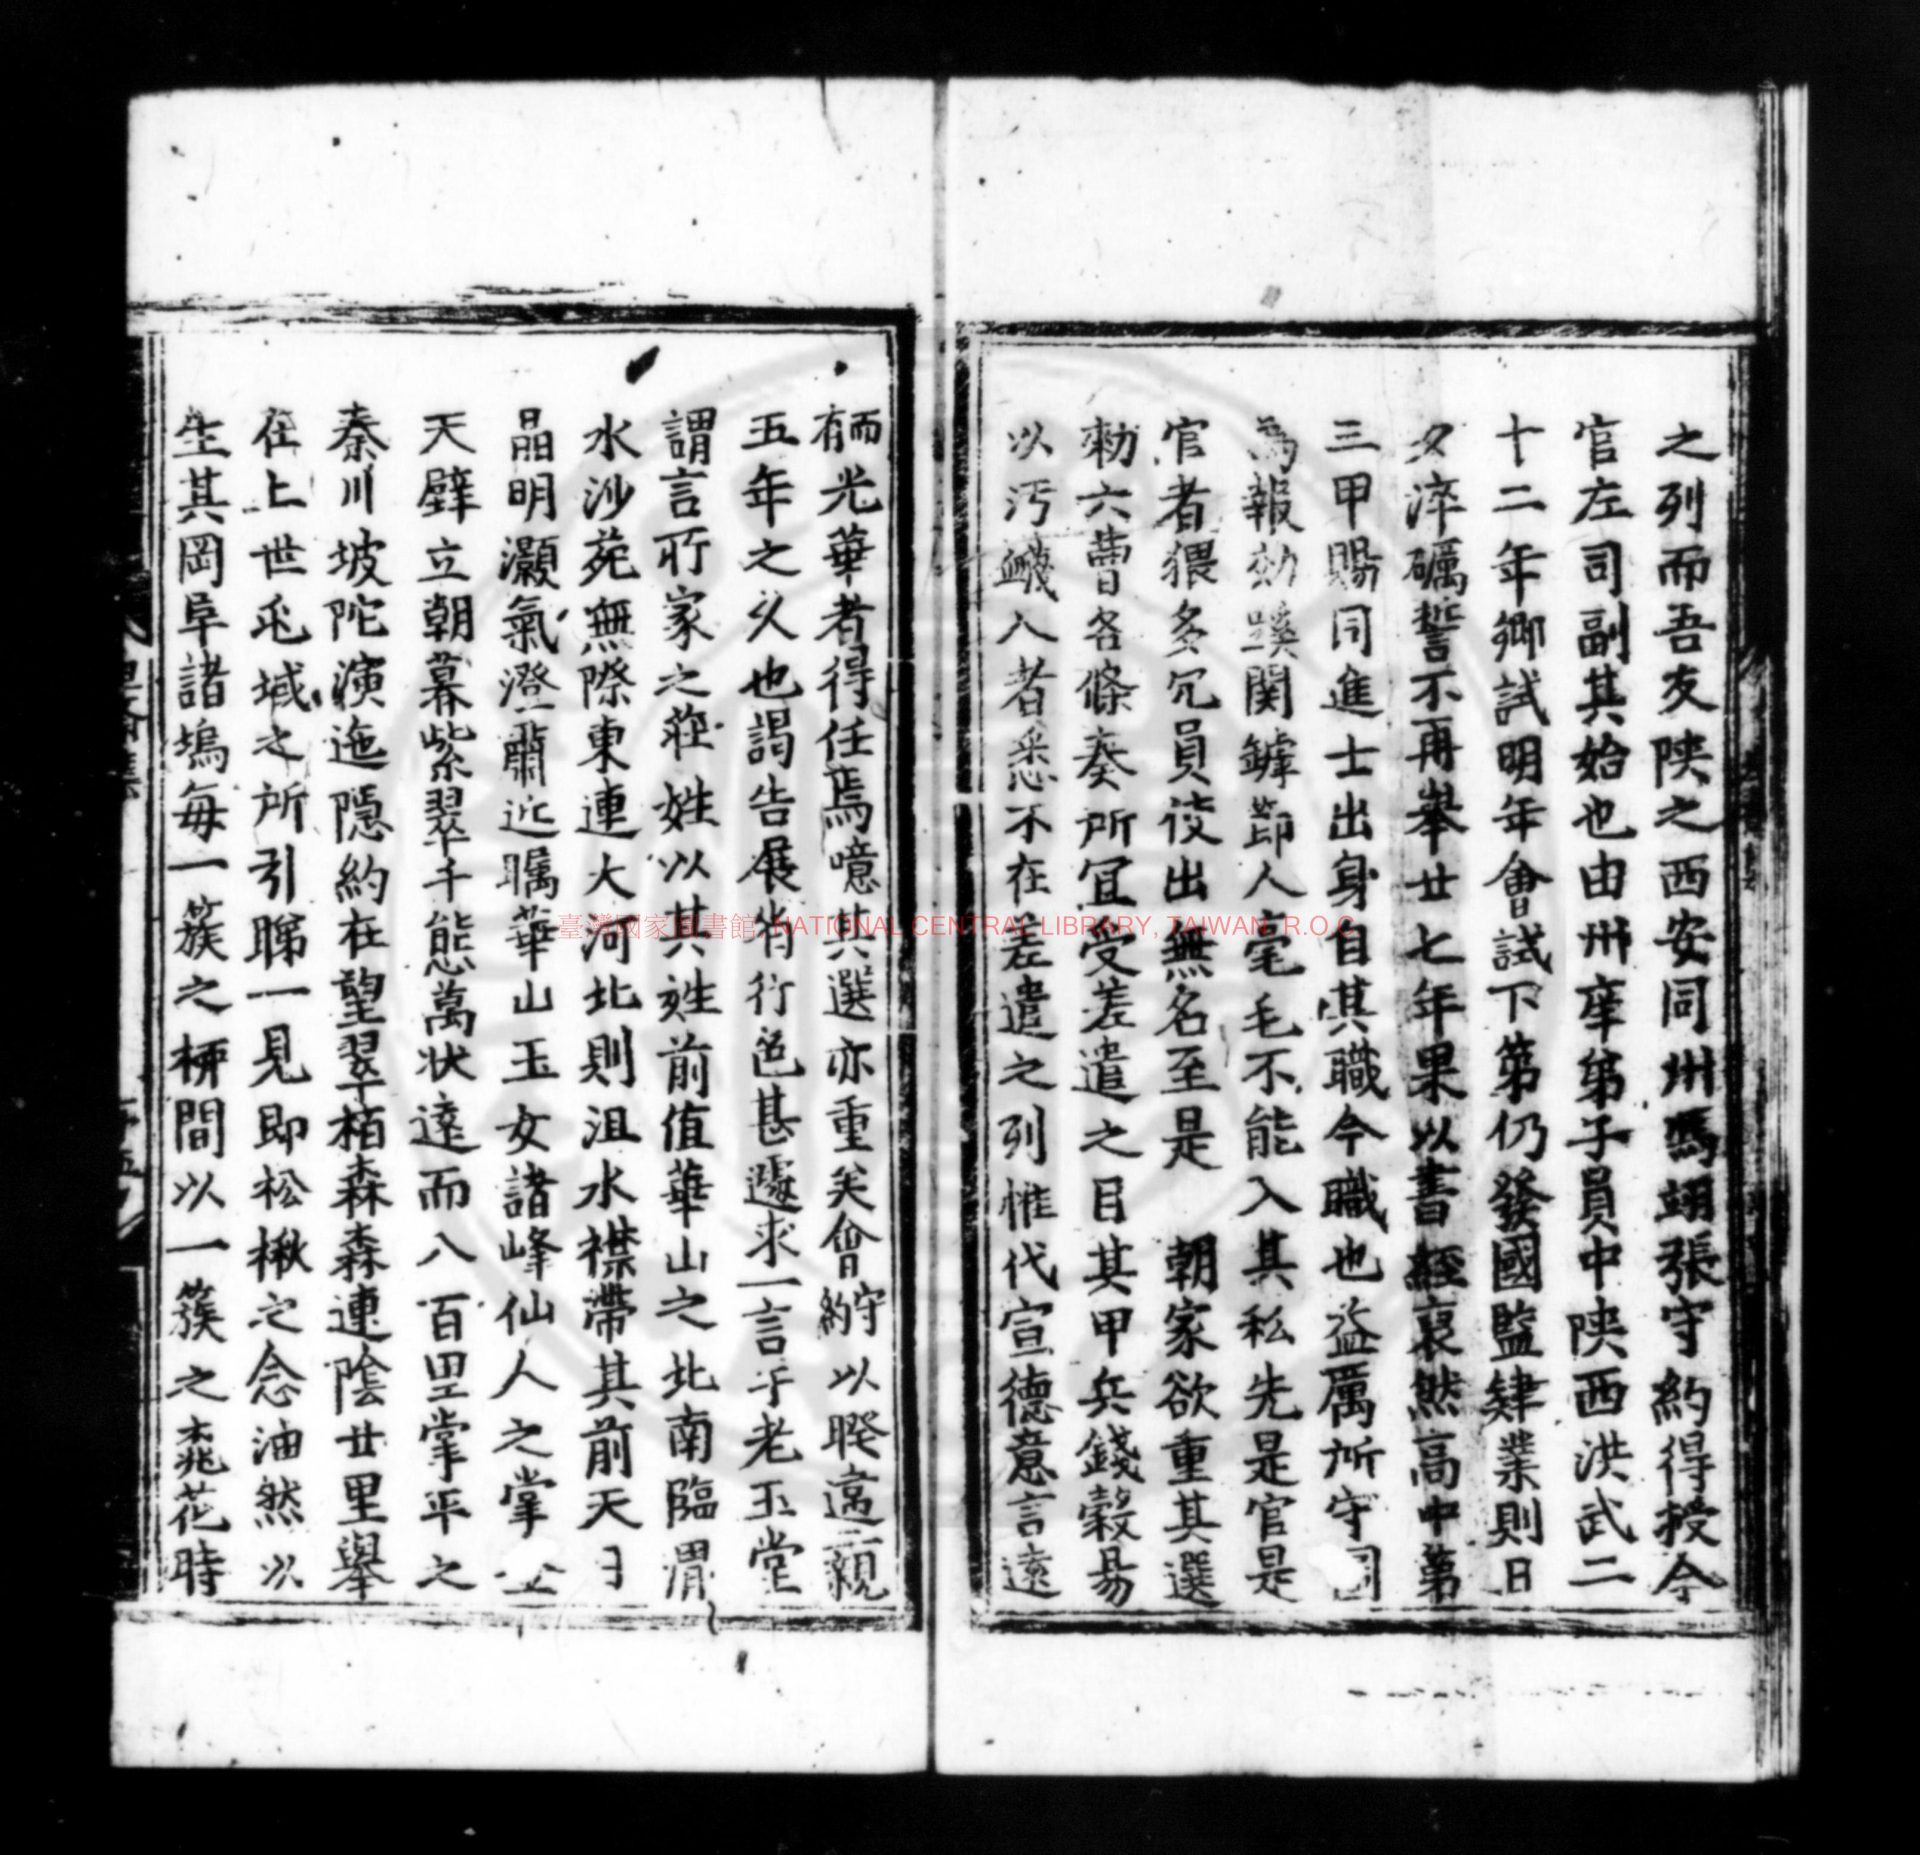 之列而吾友陝之西安同州馮翊張守約得授今
官左司副其始也由州庠弟子員中陝西洪武二
十二年鄉試明年會試下第仍發國監肄業則日
夕淬礪誓不再舉廿七年果以書經裒然高中第
三甲賜同進士出身自其職今職也益厲所守圖
為報効蹊関鏬莭人毫毛不能入其私先是官是
官者猥多冗員徒出無名至是 朝家欲重其選
勑六曹各條奏所冝受差遣之目其甲兵錢穀易
以汚衊人者悉不在差遣之列惟代宣德意言遠
而有光華者得任焉噫其選亦重矣會守約以暌違二親
五年之久也謁告展省行色甚遽求一言于老玉堂
謂言所家之莊姓以其姓前值華山之北南臨渭
水沙苑無際東連大河北則沮水襟帶其前天日
晶明灝氣澄肅近矚華山玉女諸峰仙人之掌
天壁立朝暮紫翠千態萬状遠而八百里掌平之
秦川坡陀演迤隱約在望翠栢森森連陰廿里舉
在上世兆域之所引睇一見即松楸之念油然以
生其岡阜諸塢每一簇之栟間以一簇之桃花時